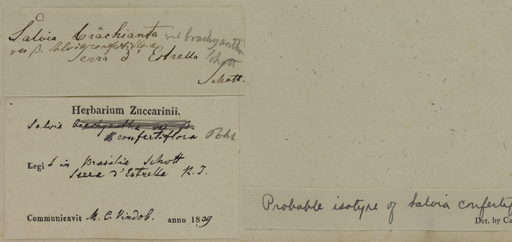 Salvia brachiantha vel brachyantha
var β. Salvia confertiflora Schott
Serra d'Estrella
Schott.
Herbarium Zuccarinii.
Salvia brachyantha var β.
confertiflora Pohl
Legit in Brasilia Schott
Serra d'Estrella R. J.
Communicavit M. C. Vindob. anno 1839
Probable isotype of Salvia conferti
Det. by Ca